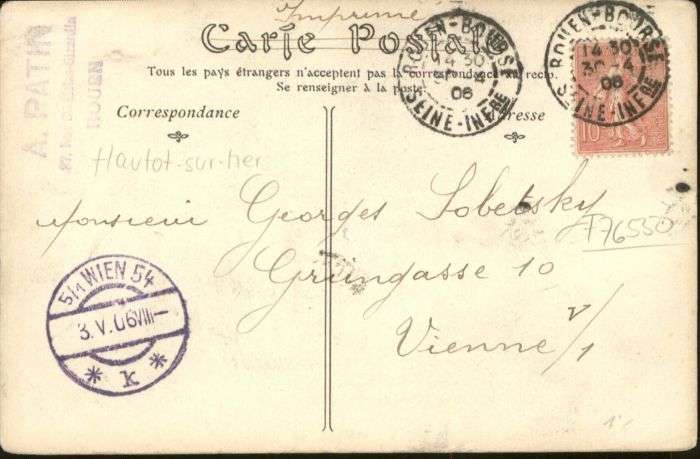 Imprimé
Carte Postale
Tous les pays étrangers n'acceptent pas la correspondance au recto.
Se renseigner à la poste
Correspondance
Adresse
A. PATIN
ROUEN
ROUEN-BOURSE
14 30
30-4
06
SEINE-INFRE
ROUEN-BOURSE
14 30
30-4
06
SEINE-INFRE
10
Hautot-sur-Mer
Monsieur Georges Sobetsky
F76550
Grüngasse 10
Vienne V/1
5/1 WIEN 54
3.V.06 VIII-
* k *